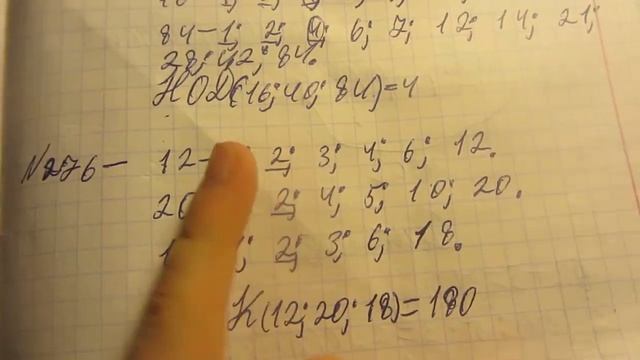 84-1; 2; 4; 6; 7; 12; 14; 21;
28; 42; 84.
НОД(16;40;84)=4
№276- 12- 2; 3; 4; 6; 12.
20 2; 4; 5; 10; 20.
1 1; 2; 3; 6; 18.
К(12;20;18)=180